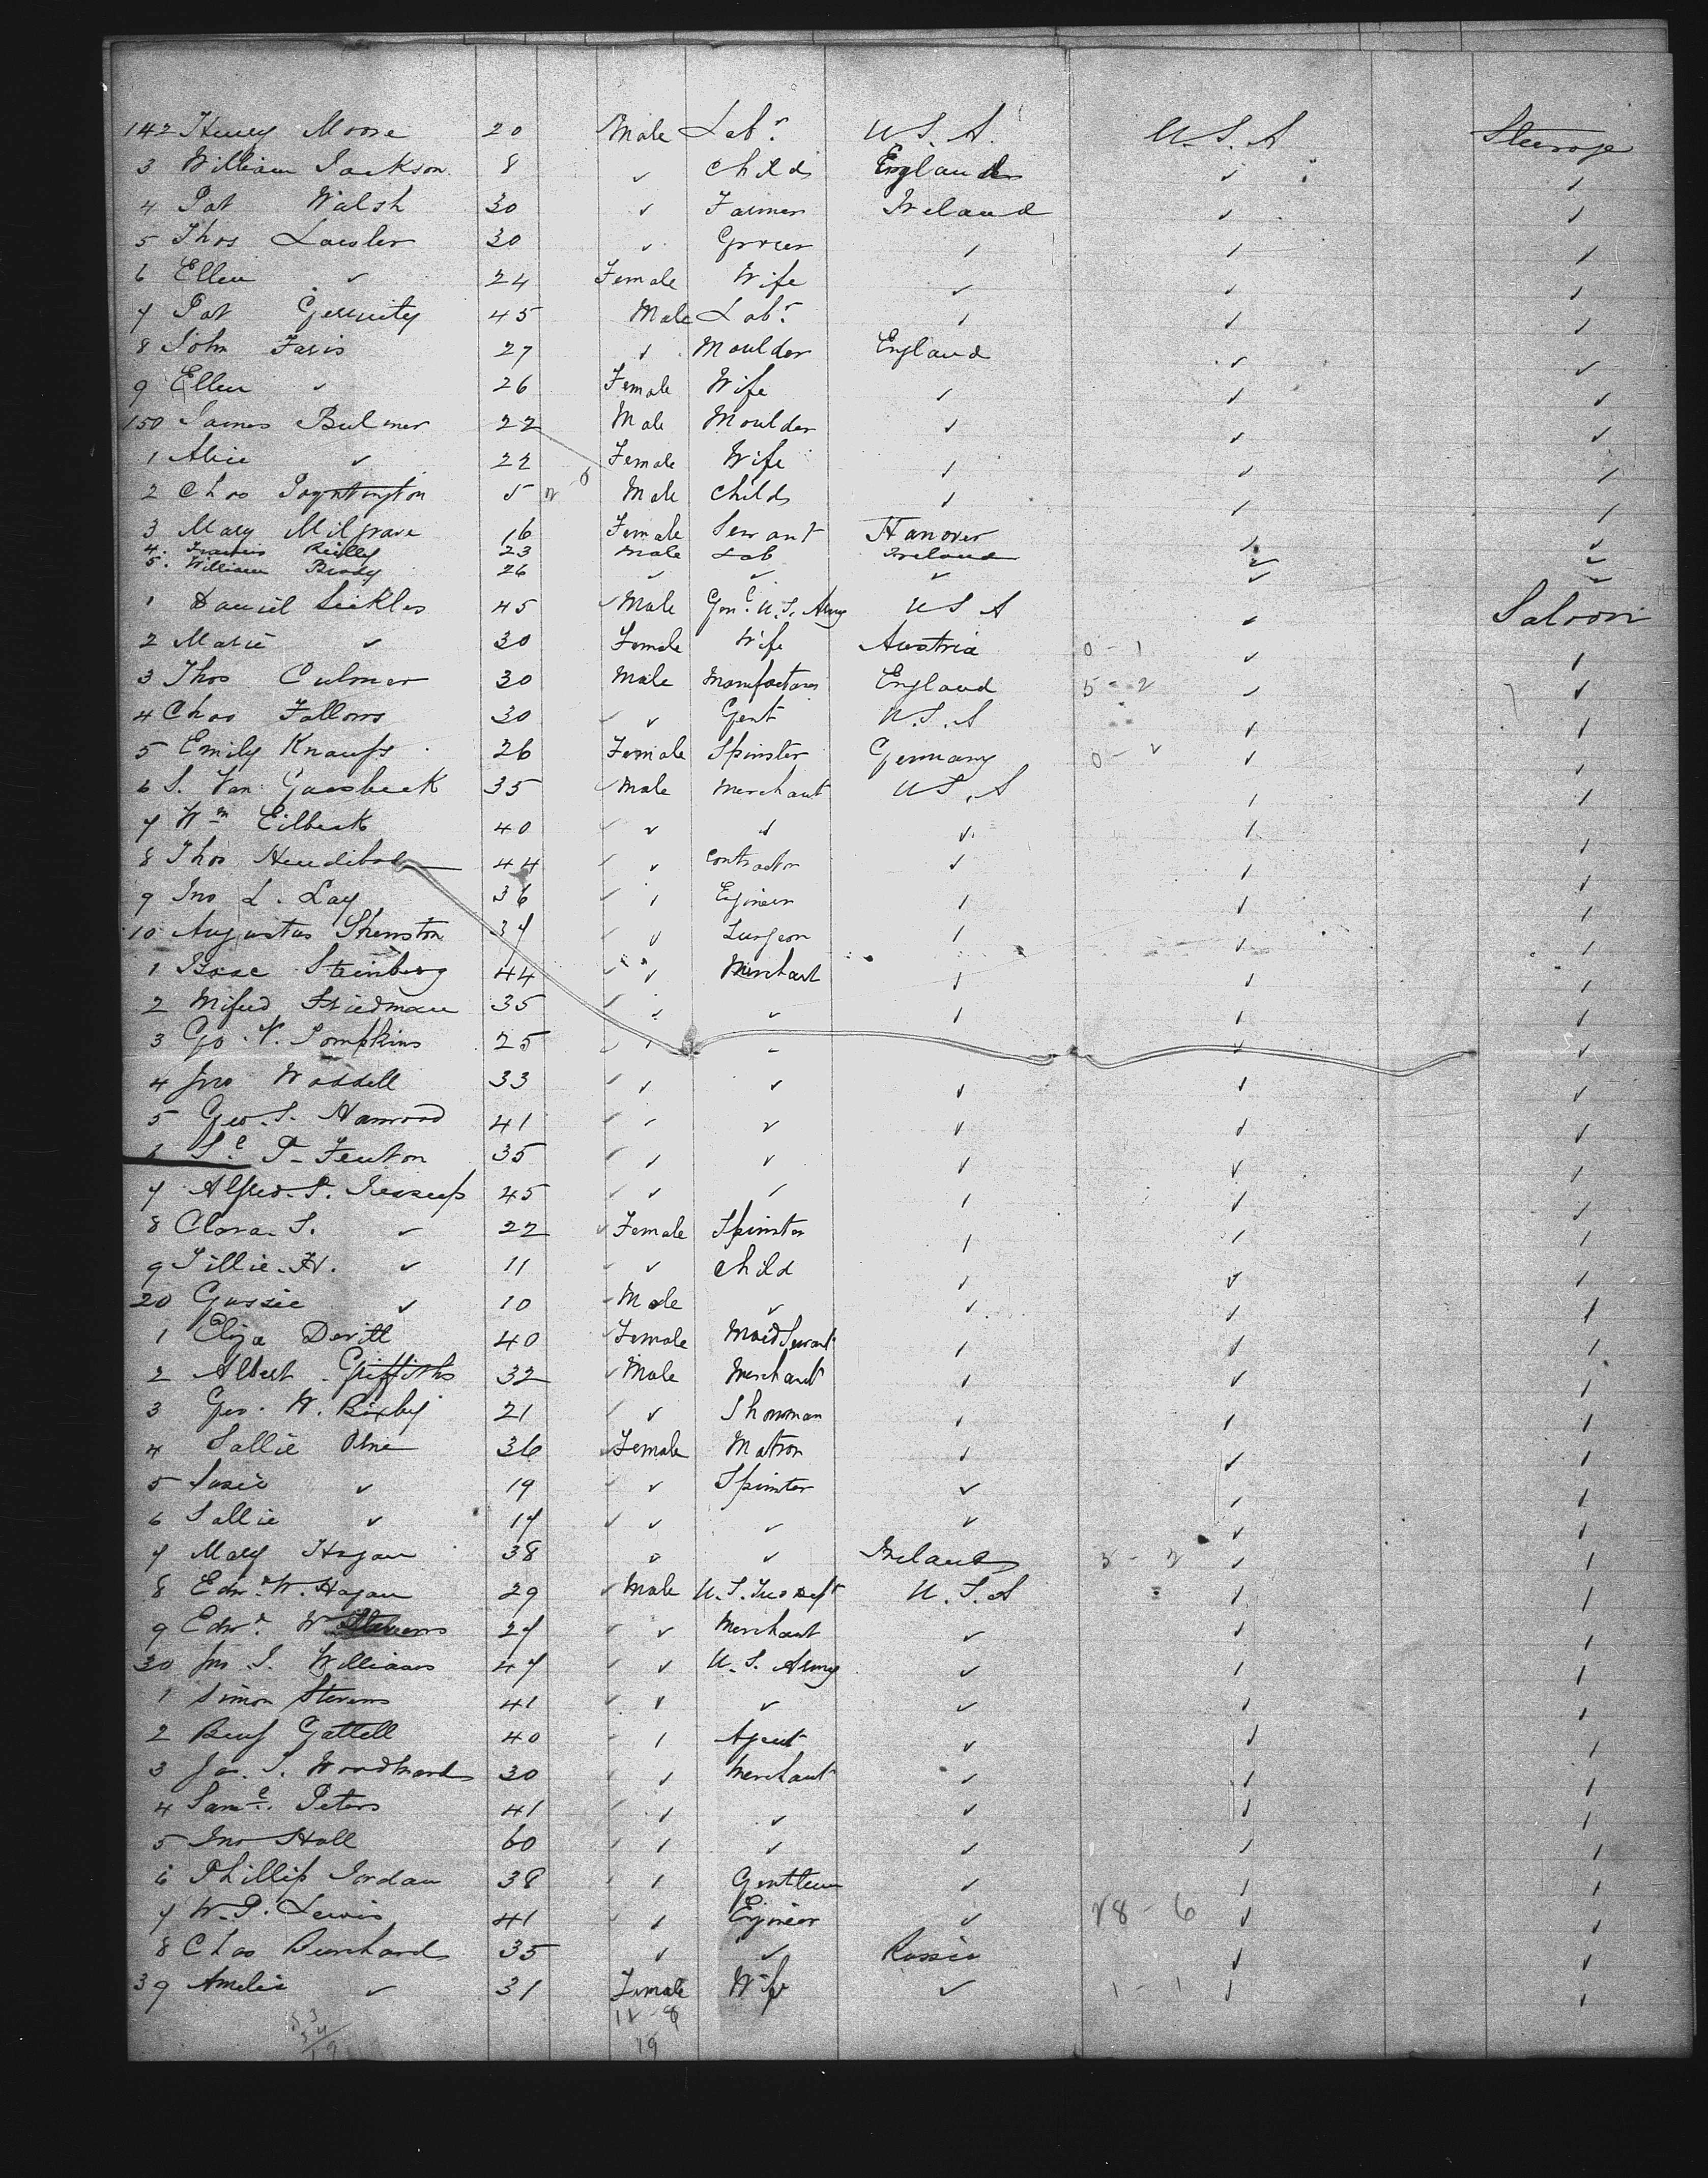 142 Henry Moore 20 Male Labr U.S.A. U.S.A Steerage
3 William Jackson 8 ✓ Child England ✓ ✓
4 Pat Walsh 30 ✓ Farmer Ireland ✓ ✓
5 Thos 30 ✓ Grocer ✓ ✓ ✓
6 Ellen ✓ 24 Female Wife ✓ ✓ ✓
7 Pat 45 Male Labr ✓ ✓ ✓
8 John Faris 27 ✓ Moulder England ✓ ✓
9 Ellen ✓ 26 Female Wife ✓ ✓ ✓
150 James Bulmer 22 Male Moulder ✓ ✓ ✓
1 Alice ✓ 22 Female Wife ✓ ✓ ✓
2 Chas Poyntington 5 Male Child ✓ ✓ ✓
3 Mary Milgrave 16 Female Servant Hanover ✓ ✓
4. Francis Reilly 23 Male Lab Ireland ✓ ✓
5. William Brady 26 ✓ ✓ ✓ ✓ ✓
1 Daniel Sickles 45 Male Genl U.S. Army U S A ✓ Saloon
2 Marie ✓ 30 Female Wife Austria 0 - 1 ✓ ✓
3 Thos Culmer 30 Male Manufacturer England 5 - 2 ✓ ✓
4 Chas Fallows 30 ✓ Gent U.S.A ✓ ✓
5 Emily Knaufs 26 Female Spinster Germany ✓ ✓
6 S. Van Gaasbeek 35 Male Merchant U S. A ✓ ✓
7 Wm Eilbeck 40 ✓ ✓ ✓ ✓ ✓
8 Thos 44 ✓ Contractor ✓ ✓ ✓
9 Jno L. Lay 36 ✓ Egineer ✓ ✓ ✓
10 Augustus Shenston 37 ✓ Surgeon ✓ ✓ ✓
1 Isaac Steinberg 44 ✓ Merchant ✓ ✓ ✓
2 Friedman 35 ✓ ✓ ✓ ✓ ✓
3 Geo. W. Tompkins 25 ✓ ✓ ✓ ✓
4 Jno Waddell 33 ✓ ✓ ✓ ✓ ✓
5 Geo. S. Harwood 41 ✓ ✓ ✓ ✓ ✓
6 P. Fenton 35 ✓ ✓ ✓ ✓ ✓
7 Alfred. S. Jessup 45 ✓ ✓ ✓ ✓ ✓
8 Clara. S. ✓ 22 Female Spinster ✓ ✓ ✓
9 Tillie. H. ✓ 11 ✓ Child ✓ ✓ ✓
20 Gussie ✓ 10 Male ✓ ✓ ✓ ✓
1 Eliza Devitt 40 Female Maid Servant ✓ ✓ ✓
2 Albert Griffiths 32 Male Merchant ✓ ✓ ✓
3 Geo. W. Bixby 21 ✓ Showman ✓ ✓ ✓
4 Sallie 36 Female Matron ✓ ✓ ✓
5 Susie ✓ 19 ✓ Spinster ✓ ✓ ✓
6 Sallie ✓ 17 ✓ ✓ ✓ ✓ ✓
7 Mary Hogan 38 ✓ ✓ Ireland 5 - 2 ✓ ✓
8 Edwd W. Hogan 29 Male U.S. U.S.A ✓ ✓
9 Edwd W Stevens 27 ✓ Merchant ✓ ✓ ✓
30 Jno S. Williams 47 ✓ U.S. Army ✓ ✓ ✓
1 Simon Stevens 41 ✓ ✓ ✓ ✓ ✓
2 Benj Gattell 40 ✓ Agent ✓ ✓ ✓
3 Jas. S. Woodward 30 ✓ Merchant ✓ ✓ ✓
4 Saml. Peters 41 ✓ ✓ ✓ ✓ ✓
5 Jno Hall 60 ✓ ✓ ✓ ✓ ✓
6 Phillip Jordan 38 ✓ Gentleman ✓ ✓ ✓
7 W. P. Lewis 41 ✓ Egineer ✓ 28 - 6 ✓ ✓
8 Chas Burchard 35 ✓ ✓ Russia ✓ ✓
39 Amelia ✓ 31 Female Wife ✓ 1 - 1 ✓ ✓
12 - 8
19